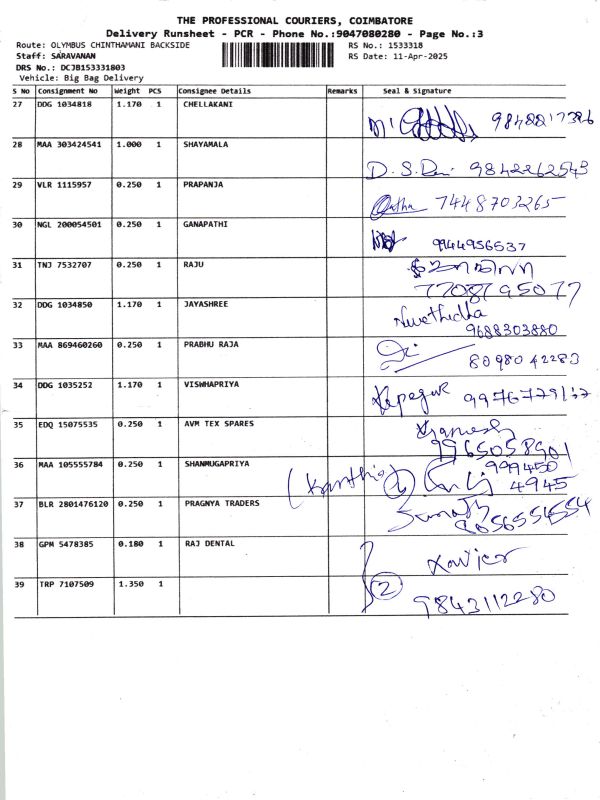 THE PROFESSIONAL COURIERS, COIMBATORE
Delivery Runsheet - PCR - Phone No.:9047080280 - Page No.:3
Route: OLYMBUS CHINTHAMANI BACKSIDE RS No.: 1533318
Staff: SARAVANAN RS Date: 11-Apr-2025
DRS No.: DCJB153331803
Vehicle: Big Bag Delivery
S No Consignment No Weight PCS Consignee Details Remarks Seal & Signature
27 DDG 1034818 1.170 1 CHELLAKANI
28 MAA 303424541 1.000 1 SHAYAMALA D. S. 9842262543
29 VLR 1115957 0.250 1 PRAPANJA 7448703265
30 NGL 200054501 0.250 1 GANAPATHI 9944956537
31 TNJ 7532707 0.250 1 RAJU
7708795077
32 DDG 1034850 1.170 1 JAYASHREE Nivethidha
9688303880
33 MAA 869460260 0.250 1 PRABHU RAJA 8098042283
34 DDG 1035252 1.170 1 VISWHAPRIYA
35 EDQ 15075535 0.250 1 AVM TEX SPARES
9965058901
36 MAA 105555784 0.250 1 SHANMUGAPRIYA 999450
4945
37 BLR 2801476120 0.250 1 PRAGNYA TRADERS
38 GPM 5478385 0.180 1 RAJ DENTAL Xavier
39 TRP 7107509 1.350 1 2
9843112280